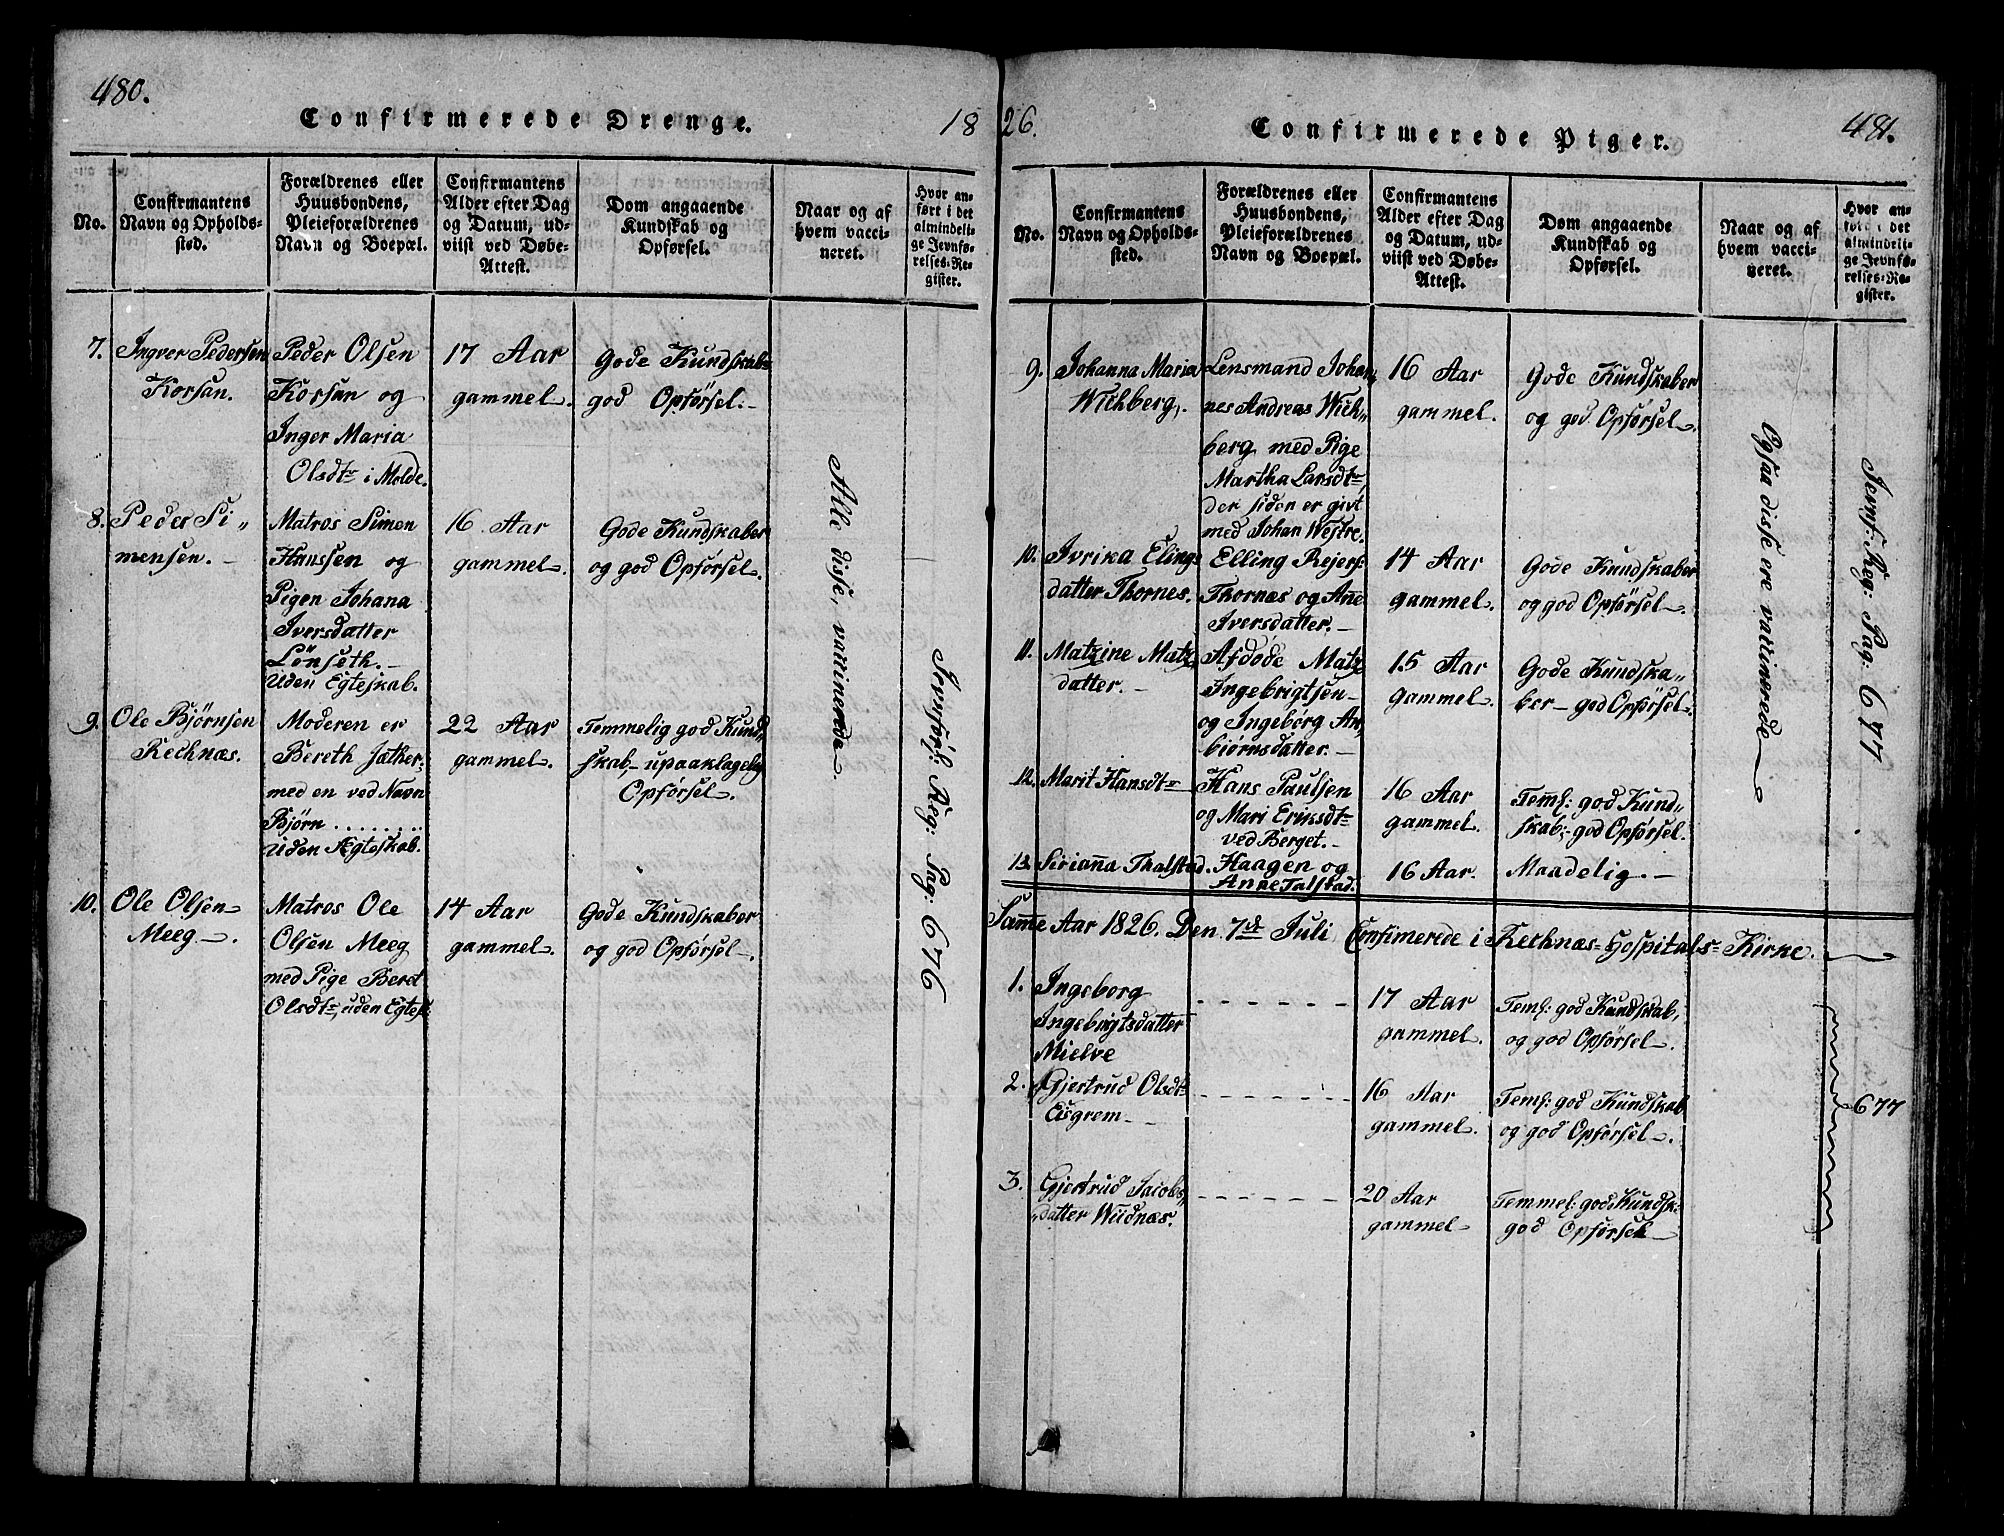 480.
Confirmerede Drenge.
18
No.
Confirmantens
Navn og Opholds-
sted.
Forældrenes eller
Huusbondens,
Pleieforældrenes
Navn og Boepæl.
Confirmantens
Alder efter Dag
og Datum, ud-
viist ved Døbe-
Attest.
Dom angaaende
Kundskab og
Opførsel.
Naar og af
hvem vacci-
neret.
Hvor an-
ført i det
almindeli-
ge Jevnfø-
relses-Re-
gister.
7.
Ingver Pedersen
Korsan.
Peder Olsen
Korsan og
Inger Maria
Olsdtr i Molde.
17 Aar
gammel.
Gode Kundskab-
god Opførsel.
8.
Peder Si„
mensen.
Matros Simen
Hanssen og
Pigen Johana
Iversdatter
Lönseth.
Uden Egteskab.
16 Aar
gammel.
Gode Kundskaber
og god Opførsel.
9.
Ole Bjørnsen
Rechnæs.
Moderen er
Bereth Jather,
med en ved Navn
Bjørn ........
uden Ægteskab.
22 Aar
gammel.
Temmelig god Kund„
skab, upaaklagelig
Opförsel.
10.
Ole Olsen
Meeg.
Matros Ole
Olsen Meeg
med Pige Beret
Olsdtr, uden Egtesk:
14 Aar
gammel.
Gode Kundskaber
og god Opførsel.
Alle disse, vaccinerede.
Jevnförl: Reg: Pag: 676
26.
Confirmerede Piger.
481.
No.
Confirmantens
Navn og Opholds-
sted.
Forældrenes eller
Huusbondens,
Pleieforældrenes
Navn og Boepæl.
Confirmantens
Alder efter Dag
og Datum, ud-
viist ved Døbe-
Attest.
Dom angaaende
Kundskab og
Opførsel.
Naar og af
hvem vacci-
neret.
Hvor an-
ført i det
almindeli-
ge Jevnfø-
relses-Re-
gister.
9.
Johanna Maria
Wichberg.
Lensmand Johan„
nes Andreas Wich„
berg med Pige
Martha Larsdtr,
der siden er givt
med Johan Westre.
16 Aar
gammel.
Gode Kundskaber
og god Opførsel.
10.
Ivrika Elings
datter Thornes.
Elling Rejers:
Thornæs og Ane
Iversdatter.
14 Aar
gammel.
Gode Kundskaber
og god Opförsel.
11.
Matzine Matz„
datter.
Afdöde Matz
Ingebrigtsen
og Ingebörg An„
biörnsdatter.
15 Aar
gammel.
Gode Kundska„
ber god Opförsel.
12.
Marit Hansdtr
Hans Paulsen
og Mari Eriksdtr
ved Berget.
16 Aar
gammel.
Teml: god Kund„
skab, god Opførsel.
13.
Sirianna Thalstad.
Haagen og
Anne Talstad.
16 Aar.
Maadelig.
Ogsaa disse ere vaccinerede
Jevnf: Reg: Pag: 677
Samme Aar 1826. Den 7de Juli Confimerede i Rechnæs-Hospitals-Kirke.
1.
Ingeborg
Ingebrigtsdatter
Mielve
17 Aar
gammel.
Teml: god Kundskab,
og god Opførsel.
2.
Gjertrud Olsdtr
Eisgrem
16 Aar
gammel.
Teml: god Kundskab
og god Opførsel.
677
3.
Gjertrud Jacobs„
„datter Wiidnæs.
20 Aar
gammel
Temmel: god Kundsk:
god Opførsel